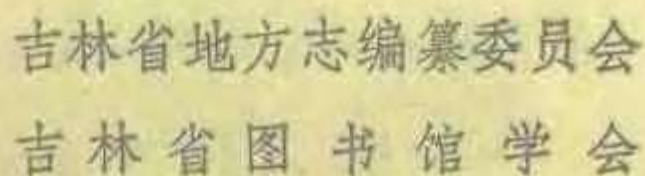 吉林省地方志编纂委员会
吉林省图书馆学会